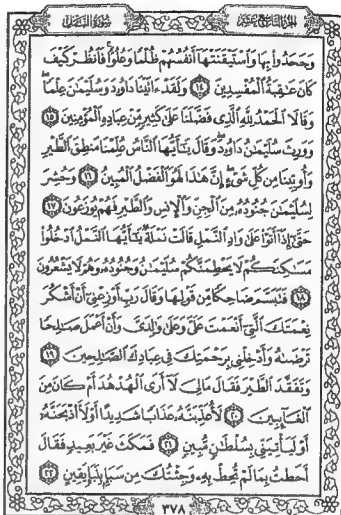 الجزء التاسع عشر سورة النمل
وَجَحَدُوا۟ بِهَا وَٱسْتَيْقَنَتْهَآ أَنفُسُهُمْ ظُلْمًا وَعُلُوًّا ۚ فَٱنظُرْ كَيْفَ
كَانَ عَٰقِبَةُ ٱلْمُفْسِدِينَ ١٤ وَلَقَدْ ءَاتَيْنَا دَاوُۥدَ وَسُلَيْمَٰنَ عِلْمًا ۖ
وَقَالَا ٱلْحَمْدُ لِلَّهِ ٱلَّذِى فَضَّلَنَا عَلَىٰ كَثِيرٍ مِّنْ عِبَادِهِ ٱلْمُؤْمِنِينَ ١٥
وَوَرِثَ سُلَيْمَٰنُ دَاوُۥدَ ۖ وَقَالَ يَٰٓأَيُّهَا ٱلنَّاسُ عُلِّمْنَا مَنطِقَ ٱلطَّيْرِ
وَأُوتِينَا مِن كُلِّ شَىْءٍ ۖ إِنَّ هَٰذَا لَهُوَ ٱلْفَضْلُ ٱلْمُبِينُ ١٦ وَحُشِرَ
لِسُلَيْمَٰنَ جُنُودُهُۥ مِنَ ٱلْجِنِّ وَٱلْإِنسِ وَٱلطَّيْرِ فَهُمْ يُوزَعُونَ ١٧
حَتَّىٰٓ إِذَآ أَتَوْا۟ عَلَىٰ وَادِ ٱلنَّمْلِ قَالَتْ نَمْلَةٌ يَٰٓأَيُّهَا ٱلنَّمْلُ ٱدْخُلُوا۟
مَسَٰكِنَكُمْ لَا يَحْطِمَنَّكُمْ سُلَيْمَٰنُ وَجُنُودُهُۥ وَهُمْ لَا يَشْعُرُونَ
١٨ فَتَبَسَّمَ ضَاحِكًا مِّن قَوْلِهَا وَقَالَ رَبِّ أَوْزِعْنِىٓ أَنْ أَشْكُرَ
نِعْمَتَكَ ٱلَّتِىٓ أَنْعَمْتَ عَلَىَّ وَعَلَىٰ وَٰلِدَىَّ وَأَنْ أَعْمَلَ صَٰلِحًا
تَرْضَىٰهُ وَأَدْخِلْنِى بِرَحْمَتِكَ فِى عِبَادِكَ ٱلصَّٰلِحِينَ ١٩
وَتَفَقَّدَ ٱلطَّيْرَ فَقَالَ مَالِىَ لَآ أَرَى ٱلْهُدْهُدَ أَمْ كَانَ مِنَ
ٱلْغَآئِبِينَ ٢٠ لَأُعَذِّبَنَّهُۥ عَذَابًا شَدِيدًا أَوْ لَأَا۟ذْبَحَنَّهُۥٓ
أَوْ لَيَأْتِيَنِّى بِسُلْطَٰنٍ مُّبِينٍ ٢١ فَمَكَثَ غَيْرَ بَعِيدٍ فَقَالَ
أَحَطتُ بِمَا لَمْ تُحِطْ بِهِۦ وَجِئْتُكَ مِن سَبَإٍۭ بِنَبَإٍ يَقِينٍ ٢٢
٣٧٨